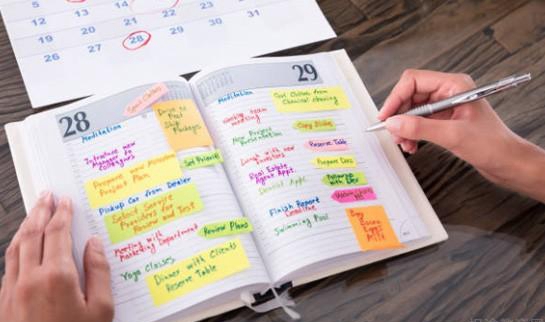 5
12 13 14
19 20 21 22 23 24
26 27 28 29 30 31
28
Meditation
Introduce new
Manager to
colleagues
Prepare New Milestone
Project Plan
Pickup Car from Dealer
Select Service
Providers for
Review and Test
Meeting with
Marketing Department
Yoga Classes
Dinner with Clients
Reserve Table
Send Clothes
Drive to
Post
Ship
Packages
Set Priorities
Review Plans
29
Meditation
Weekly team
meeting
New Project
Presentation
Lunch with new
Investors
Real Estate
Agent Appt.
Dentist Appt.
Finish Report
Deadline
Swimming Pool
Get Clothes from
Copy Slides
Reserve Table
Prepare Docs
Followup
with Dev
Buy
Cocoa
Eggs
Milk